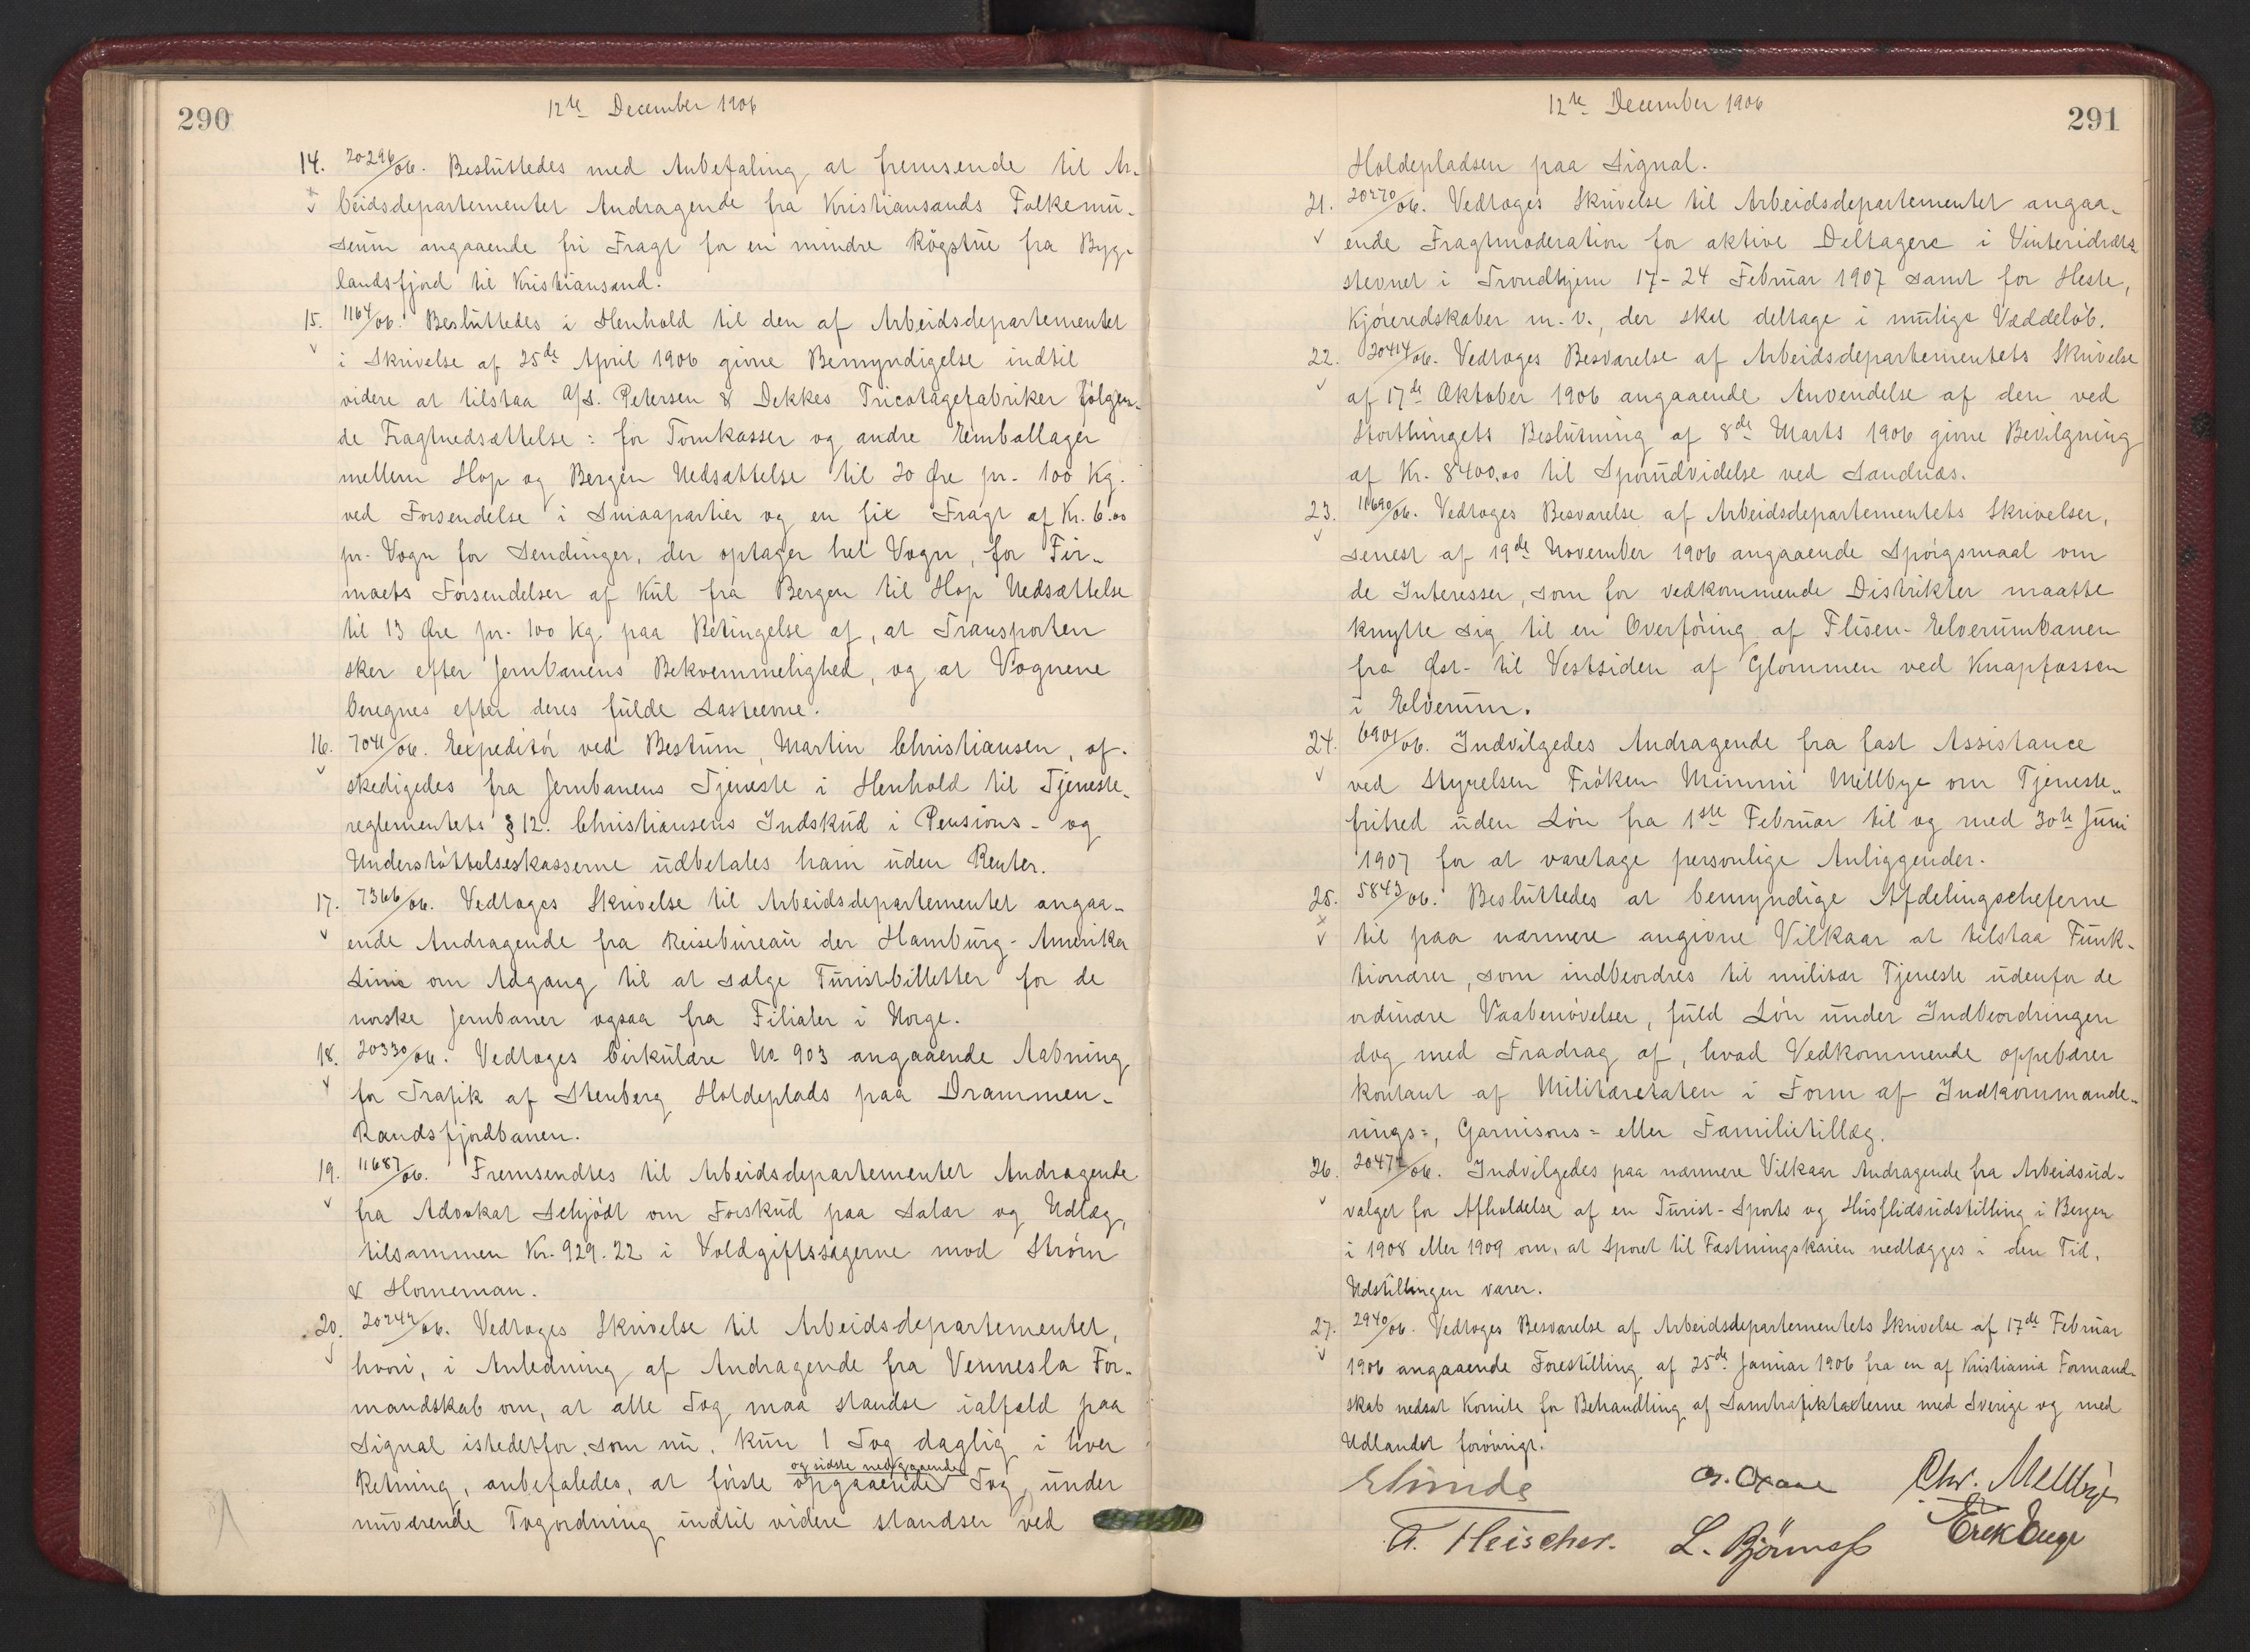 290
12te December 1906
14. 20296/06. Besluttedes med Anbefaling at fremsende til Ar-
beidsdepartementet Andragende fra Kristiansands Folkemu-
seum angaaende fri Fragt for en mindre Røgstue fra Byg-
landsfjord til Kristiansand.
15. 1164/06. Besluttedes i Henhold til den af Arbeidsdepartementet
i Skrivelse af 25de April 1906 givne Bemyndigelse indtil
videre at tilstaa A/S. Petersen & Dekkes Tricotagefabriker følgen-
de Fragtnedsættelse: for Tomkasser og andre Emballager
mellem Hop og Bergen Nedsættelse til 20 Øre pr. 100 Kg.
ved Forsendelse i Smaapartier og en fix Fragt af Kr. 6.00
pr. Vogn for Sendinger, der optager hel Vogn, for Fir-
maets Forsendelser af Kul fra Bergen til Hop Nedsættelse
til 13 Øre pr. 100 Kg. paa Betingelse af, at Transporten
sker efter Jernbanens Bekvemmelighed, og at Vognene
beregnes efter deres fulde Lasteevne.
16. 7041/06. Expeditør ved Bestum, Martin Christiansen, af-
skedigedes fra Jernbanens Tjeneste i Henhold til Tjeneste-
reglementets § 12. Christiansens Indskud i Pensions- og
Understøttelseskasserne udbetales ham uden Renter.
17. 7366/06. Vedtoges Skrivelse til Arbeidsdepartementet angaa-
ende Andragende fra Reisebureau der Hamburg-Amerika
Linie om Adgang til at sælge Turistbilletter for de
norske Jernbaner ogsaa fra Filialer i Norge.
18. 20330/06. Vedtoges Cirkulære No 903 angaaende Aabning
for Trafik af Stenberg Holdeplads paa Drammen-
Randsfjordbanen.
19. 11687/06. Fremsendtes til Arbeidsdepartementet Andragende
fra Advokat Schjødt om Forskud paa Salær og Udlæg,
tilsammen Kr. 929.22 i Voldgiftssagerne mod Strøm
& Horneman.
20. Vedtoges Skrivelse til Arbeidsdepartementet,
hvori, i Anledning af Andragende fra Vennesla For-
mandskab om, at alle Tog maa standse ialfald paa
Signal istedetfor, som nu, kun 1 Tog daglig i hver
og sidste nedgaaende
Retning, anbefaledes, at første opgaaende Tog under
nuværende Togordning indtil videre standser ved
12te December 1906
291
Holdepladsen paa Signal.
21. 20270/06. Vedtoges Skrivelse til Arbeidsdepartementet angaa-
ende Fragtmoderation for aktive Deltagere i Vinteridræts
stevnet i Trondhjem 17-24 Februar 1907 samt for Heste,
Kjøreredskaber m.v., der skal deltage i mulige Væddeløb.
22. 20414/06. Vedtoges Besvarelse af Arbeidsdepartementets Skrivelse
af 17de Oktober 1906 angaaende Anvendelse af den ved
Storthingets Beslutning af 8de Marts 1906 givne Bevilgning
af Kr. 8400.00 til Sporudvidelse ved Sandnæs.
23. 11690/06. Vedtoges Besvarelse af Arbeidsdepartementets Skrivelser,
senest af 19de November 1906 angaaende Spørgsmaal om
de Interesser, som for vedkommende Distrikter maatte
knytte sig til en Overføring af Flisen-Elverumbanen
fra Øst- til Vestsiden af Glommen ved Knapfossen
i Elverum.
24. 6901/06. Indvilgedes Andragende fra fast Assistance
ved Styrelsen Frøken Mimmi Mellbye om Tjeneste-
frihed uden Løn fra 1ste Februar til og med 30te Juni
1907 for at varetage personlige Anliggender.
25. 5843/06. Besluttedes at bemyndige Afdelingscheferne
til paa nærmere angivne Vilkaar at tilstaa Funk-
tionærer, som indbeordres til militær Tjeneste udenfor de
ordinære Vaabenøvelser, fuld Løn under Indbeordringen
dog med Fradrag af, hvad Vedkommende oppebærer
kontant af Militæretaten i Form af Indkommande-
rings-, Garnisons- eller Familietillæg.
26. Indvilgedes paa nærmere Vilkaar Andragende fra Arbeidsud-
valget for Afholdelse af en Turist-Sports og Husflidsudstilling i Bergen
i 1908 eller 1909 om, at Sporet til Fæstningskaien nedlægges i den Tid,
Udstillingen varer.
27. 2940/06. Vedtoges Besvarelse af Arbeidsdepartementets Skrivelse af 17de Februar
1906 angaaende Forestilling af 25de Januar 1906 fra en af Kristiania Formand-
skab nedsat Komite for Behandling af Samtrafiktaxterne med Sverige og med
Udlandet forøvrigt.
Elunde Chr. Mellbye
A. Fleischer. L. Bjørnsg Erik Enge